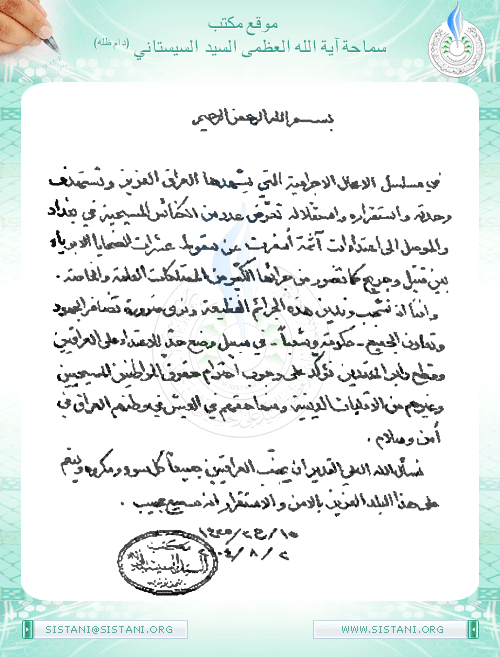 موقع مكتب
سماحة آية الله العظمى السيد السيستاني (دام ظله)
بسم الله الرحمن الرحيم
في مسلسل الاعمال الاجرامية التي يشهدها العراق العزيز وتستهدف
وحدته واستقراره واستقلاله تعرّض عدد من الكنائس المسيحية في بغداد
والموصل الى اعتداءات آثمة أسفرت عن سقوط عشرات الضحايا الابرياء
بين قتيل وجريح كما تضرر من جرائها الكثير من الممتلكات العامة والخاصة .
واننا اذ نشجب وندين هذه الجرائم الفظيعة ونرى ضرورة تضافر الجهود
وتعاون الجميع - حكومة وشعباً - في سبيل وضع حد للاعتداء على العراقيين
وقطع دابر المعتدين نؤكّد على وجوب احترام حقوق المواطنين المسيحيين
وغيرهم من الاقليات الدينية ومنها حقهم في العيش في وطنهم العراق في
أمن وسلام .
نسأل الله العلي القدير ان يجنّب العراقيين جميعاً كل سوء ومكروه وينعم
على هذا البلد العزيز بالامن والاستقرار انه سميع مجيب .
١٥/ج٢/١٤٢٥
٢/٨/٢٠٠٤
مكتب
السيد السيستاني
SISTANI@SISTANI.ORG
WWW.SISTANI.ORG